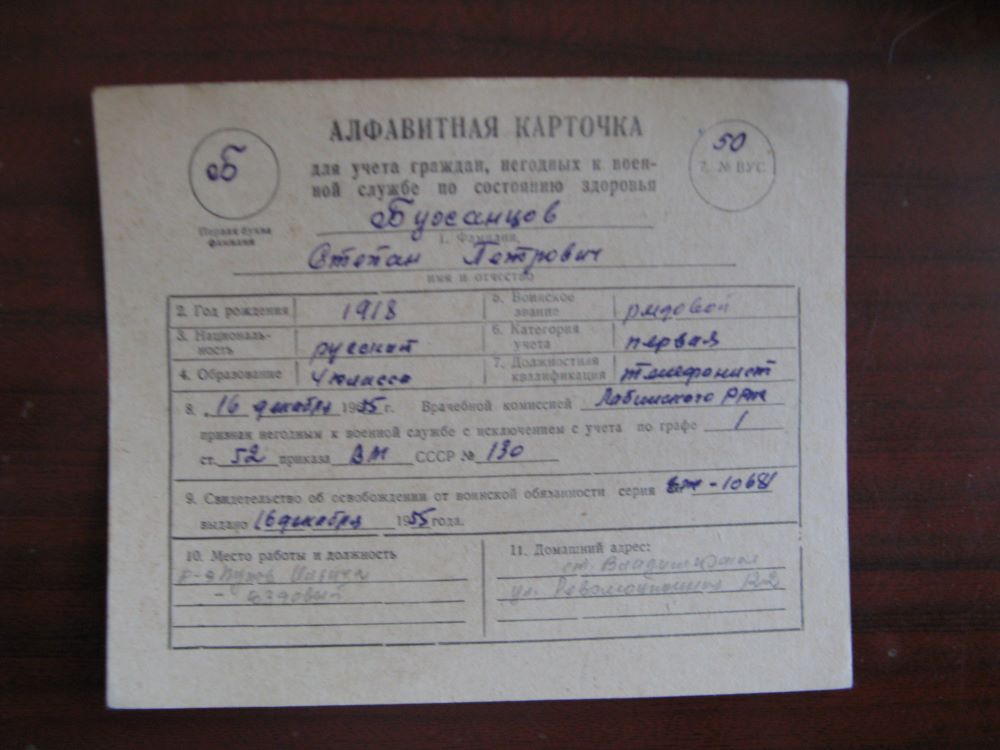 АЛФАВИТНАЯ КАРТОЧКА
для учета граждан, негодных к воен-
ной службе по состоянию здоровья
Б
Первая буква
фамилии
50
7. № ВУС
Бурсанцов
1. Фамилия,
Степан Петрович
имя и отчество
2. Год рождения 1918
5. Воинское
звание рядовой
3. Националь-
ность русский
6. Категория
учета первая
4. Образование 4 класса
7. Должностная
квалификация телефонист
8. 16 декабря 1955 г. Врачебной комиссией Лабинского РВК
признан негодным к военной службе с исключением с учета по графе 1
ст. 52 приказа ВМ СССР № 130
9. Свидетельство об освобождении от воинской обязанности серия
выдано 16 декабря 1955 года.
10. Место работы и должность
ездовый
11. Домашний адрес:
ст. Владимирская
ул. Революционная